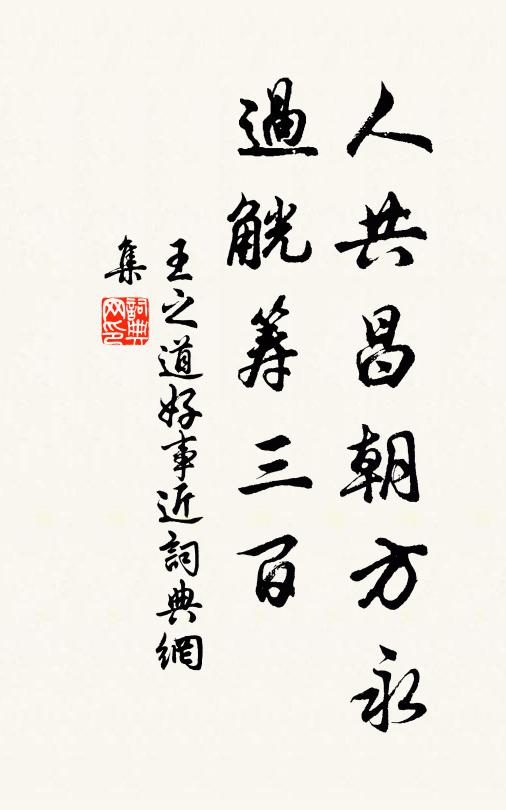 人共昌朝方永
過觥籌三百
王之道好事近詞典網
集
詞典
网印